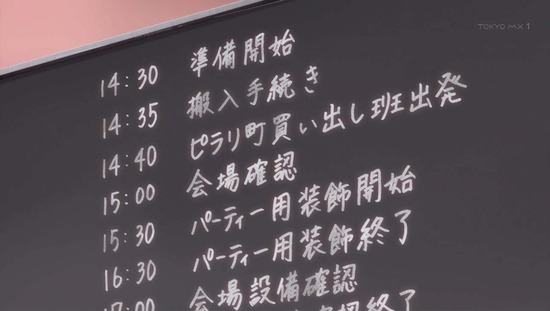 TOKYO MX 1
14:30 準備開始
14:35 搬入手続き
14:40 ピラリ町買い出し班出発
15:00 会場確認
15:30 パーティー用装飾開始
16:30 パーティー用装飾終了
17:00 会場設備確認
終了